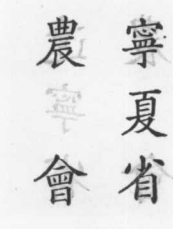 寧夏省
農會